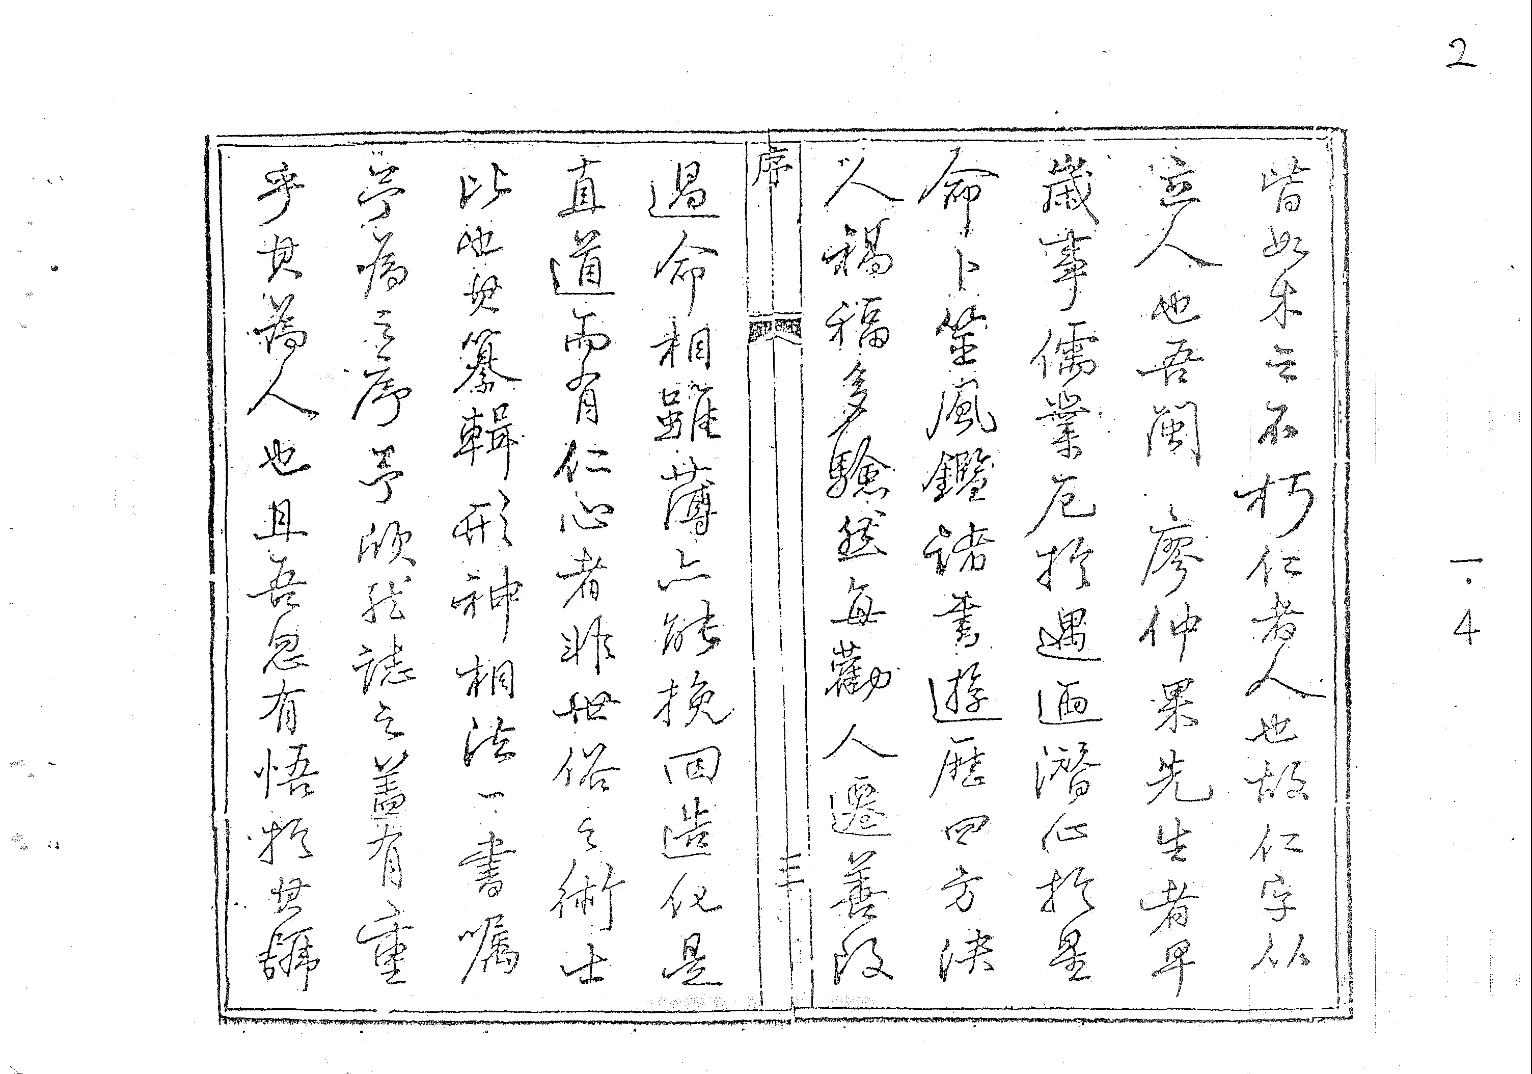 2
一.4
皆如木之不朽仁者人也故仁字从
立人也吾閩廖仲果先生者早
歲事儒業厄於遇迺潛心於星
命卜筮風鑑諸書遊歷四方決
人禍福多驗然每勸人遷善改
序
三
過命相雖薄亦能挽回造化是
直道而有仁心者非世俗之術士
比也其纂輯形神相法一書囑
予為之序予欣然誌之蓋有重
乎其為人也且吾忽有悟於其號